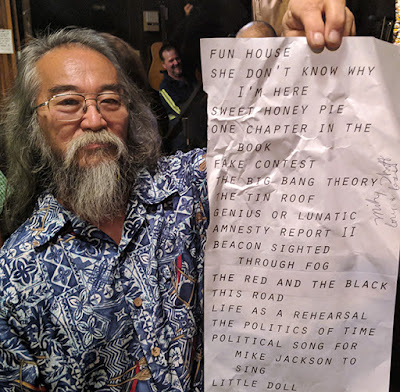 FUN HOUSE
SHE DON'T KNOW WHY
I'M HERE
SWEET HONEY PIE
ONE CHAPTER IN THE
BOOK
FAKE CONTEST
THE BIG BANG THEORY
THE TIN ROOF
GENIUS OR LUNATIC
AMNESTY REPORT II
BEACON SIGHTED
THROUGH FOG
THE RED AND THE BLACK
THIS ROAD
LIFE AS A REHEARSAL
THE POLITICS OF TIME
POLITICAL SONG FOR
MIKE JACKSON TO
SING
LITTLE DOLL